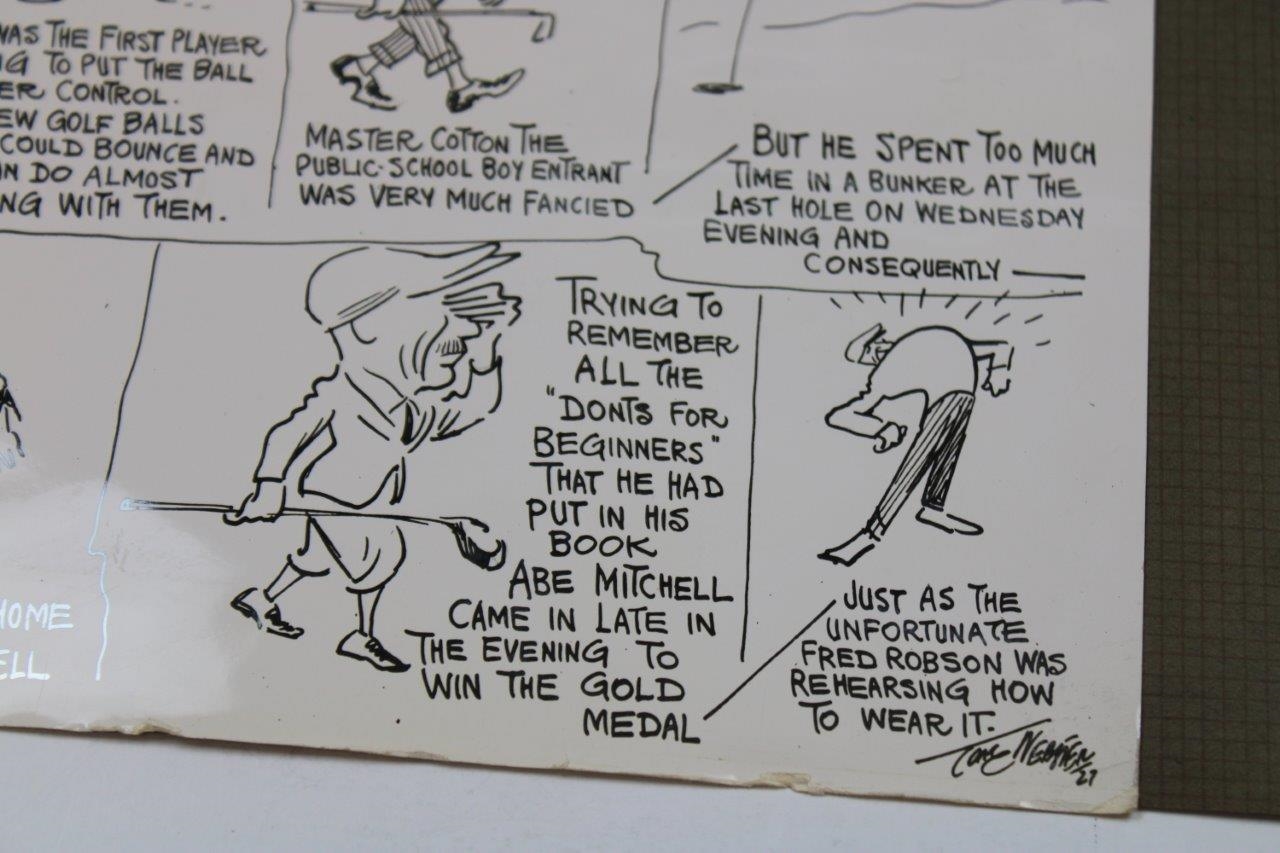 WAS THE FIRST PLAYER
NG TO PUT THE BALL
ER CONTROL.
EW GOLF BALLS
COULD BOUNCE AND
N DO ALMOST
NG WITH THEM.
MASTER COTTON THE
PUBLIC-SCHOOL BOY ENTRANT
WAS VERY MUCH FANCIED
BUT HE SPENT TOO MUCH
TIME IN A BUNKER AT THE
LAST HOLE ON WEDNESDAY
EVENING AND
CONSEQUENTLY
HOME
ELL
TRYING TO
REMEMBER
ALL THE
"DONTS FOR
BEGINNERS"
THAT HE HAD
PUT IN HIS
BOOK
ABE MITCHELL
CAME IN LATE IN
THE EVENING TO
WIN THE GOLD
MEDAL
JUST AS THE
UNFORTUNATE
FRED ROBSON WAS
REHEARSING HOW
TO WEAR IT.
27